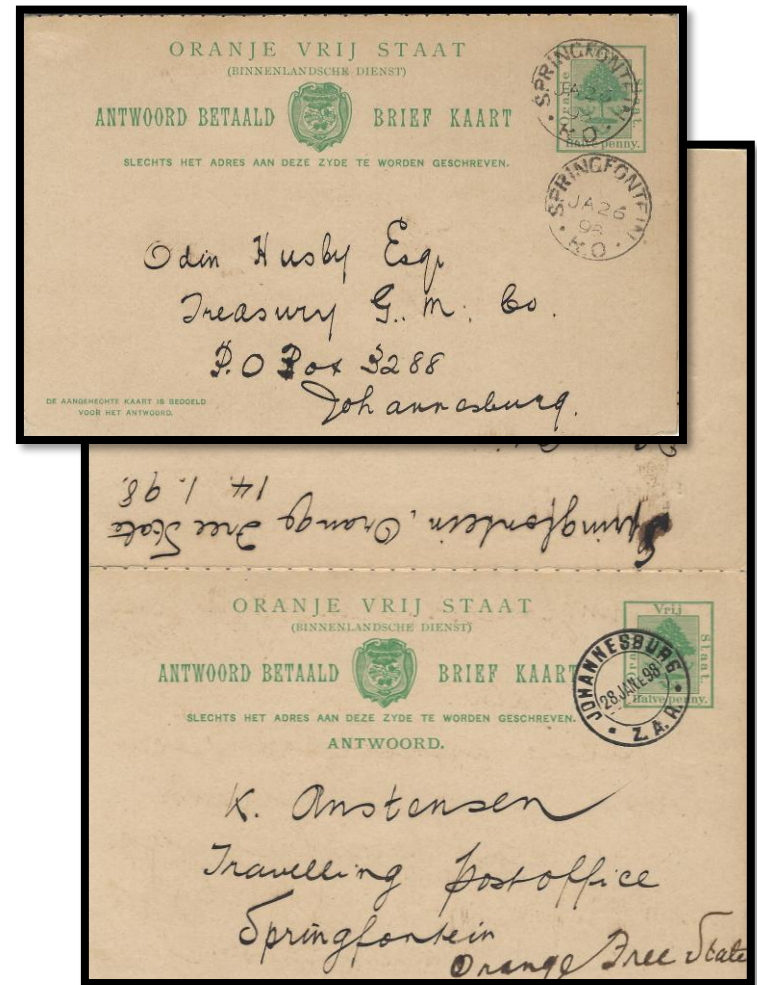 ORANJE VRIJ STAAT
(BINNENLANDSCHE DIENST)
ANTWOORD BETAALD BRIEF KAART
SLECHTS HET ADRES AAN DEZE ZYDE TE WORDEN GESCHREVEN.
Oranje Staat.
Halve penny.
SPRINGFONTEIN
JA 26
K.O
SPRINGFONTEIN
JA 26
98
K.O
Odin Husby Esqr
Treasury G. M. Co.
P.O Box 3288
Johannesburg.
DE AANGEHECHTE KAART IS BEDOELD
VOOR HET ANTWOORD.
14. 1. 98.
Springfontein, Orange Free State
ORANJE VRIJ STAAT
(BINNENLANDSCHE DIENST)
ANTWOORD BETAALD BRIEF KAART
SLECHTS HET ADRES AAN DEZE ZYDE TE WORDEN GESCHREVEN.
ANTWOORD.
Vrij
Staat.
Halve penny.
JOHANNESBURG
28 JAN E 98
Z.A.R.
K. Anstensen
Travelling Postoffice
Springfontein
Orange Free State